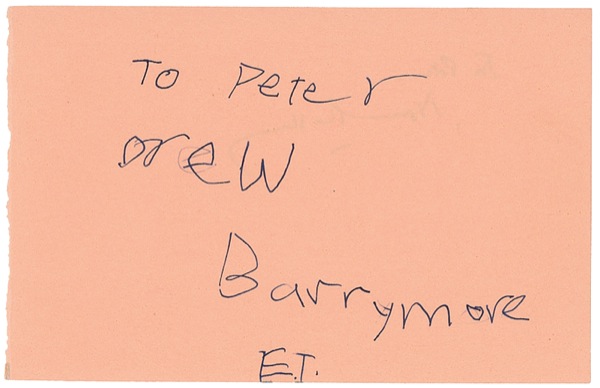 To Peter
Drew
Barrymore
E.T.